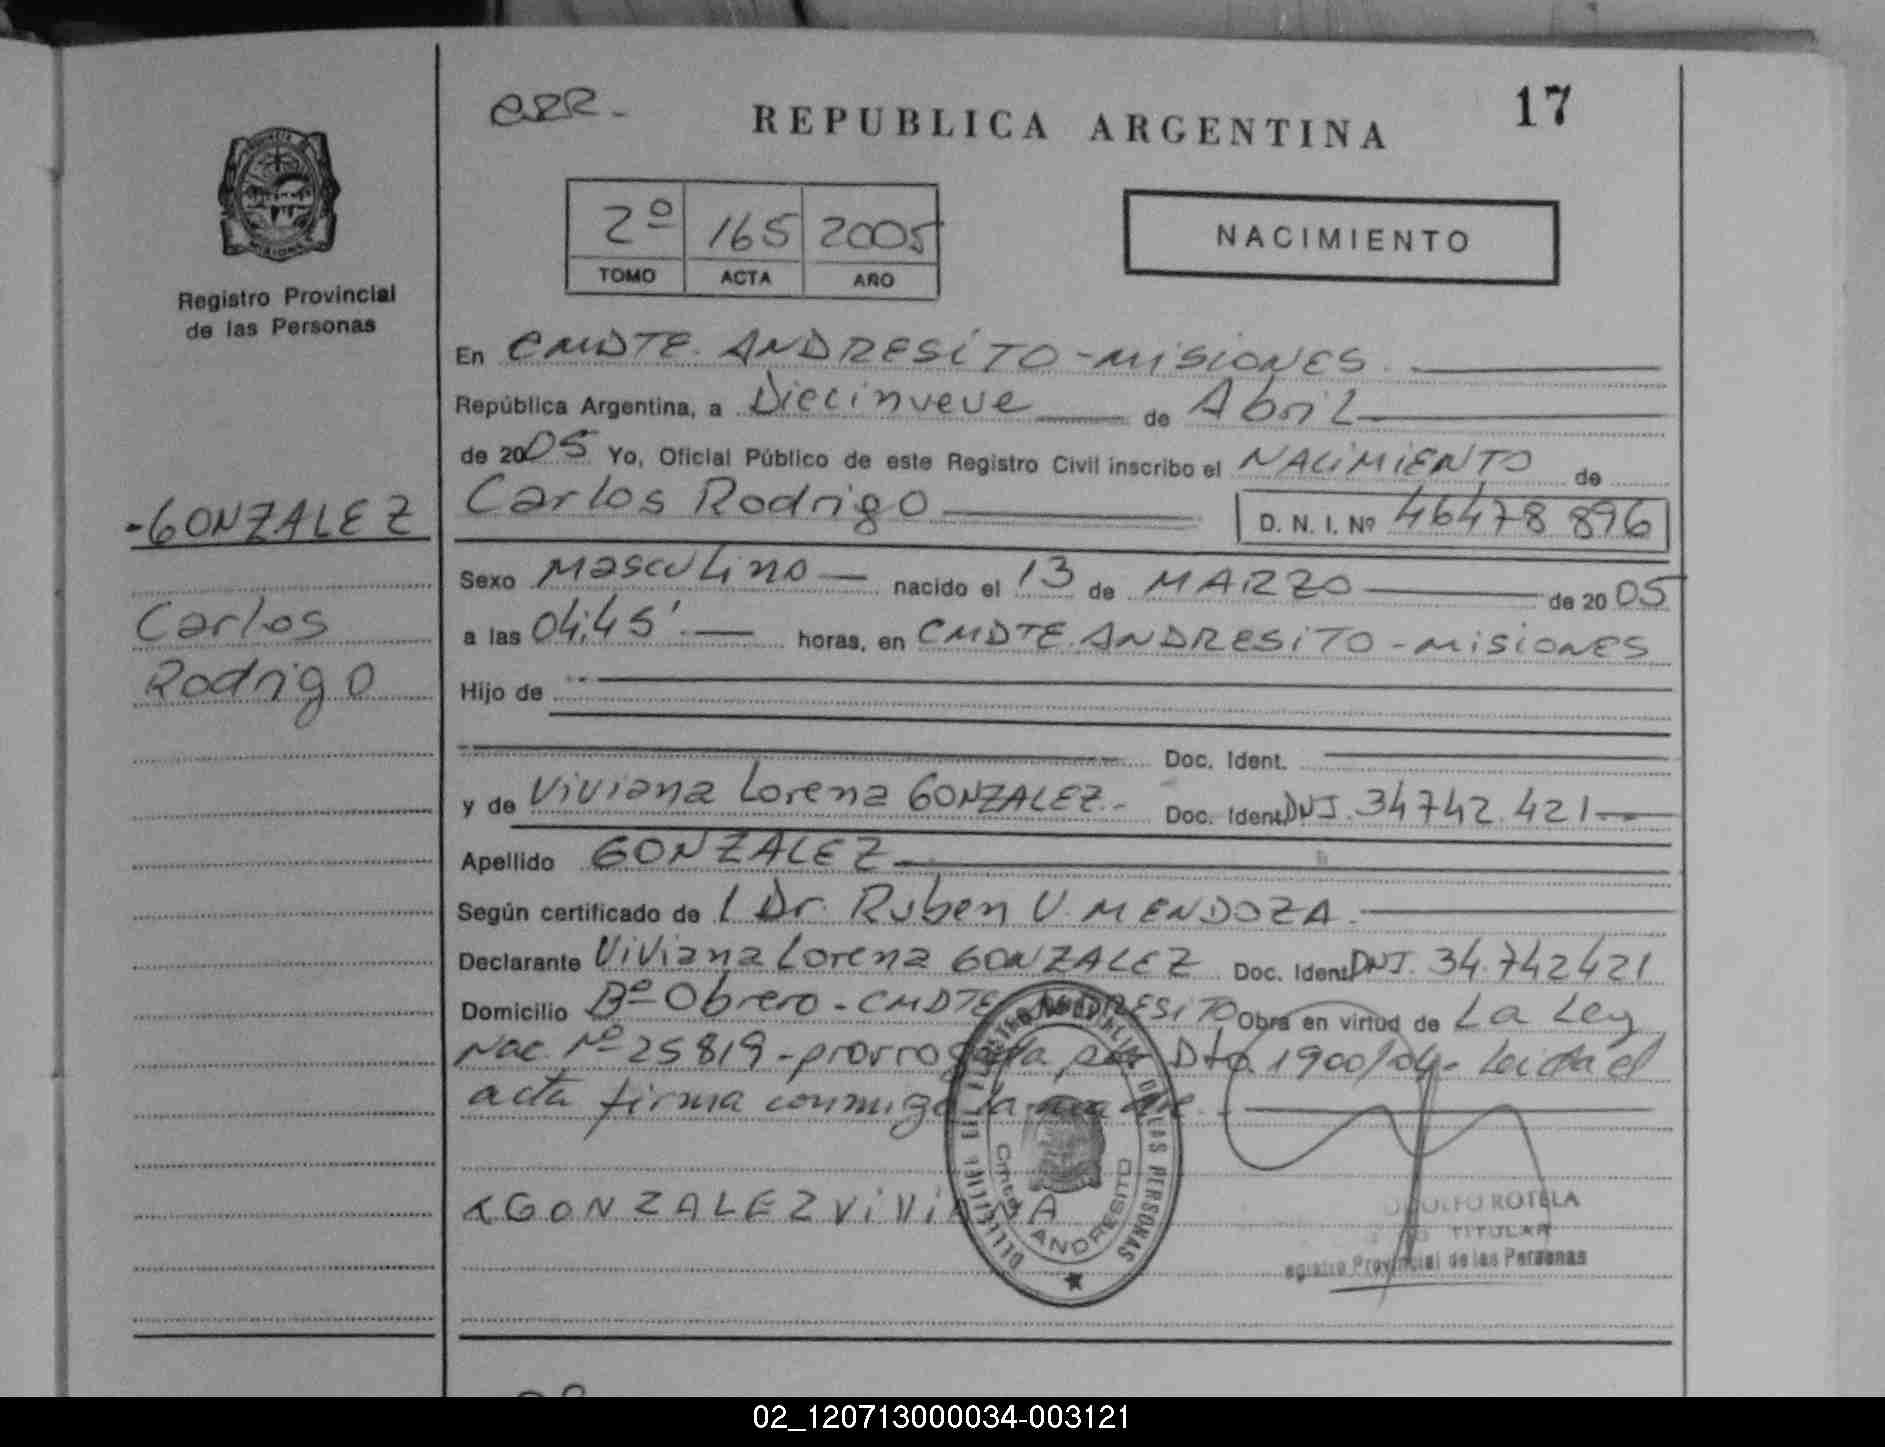 REPUBLICA ARGENTINA
17
2º 165 2005
TOMO ACTA AÑO
NACIMIENTO
Registro Provincial
de las Personas
-GONZALEZ
Carlos
Rodrigo
En CMDTE. ANDRESiTO-MiSiONES.
República Argentina, a Diecinueve de Abril
de 2005 Yo, Oficial Público de este Registro Civil inscribo el NACiMiENTO de
Carlos Rodrigo D. N. I. Nº 46478 896
Sexo Masculino nacido el 13 de MARZO de 2005
a las 04:45' horas, en CMDTE. ANDRESiTO-MiSiONES
Hijo de
Doc. Ident.
y de Viviana Lorena GONZALEZ.- Doc. Ident. DNI. 34742.421
Apellido GONZALEZ
Según certificado de l Dr. Ruben U. MENDOZA.
Declarante ViViana Lorena GONZALEZ Doc. Ident. DNI. 34.742421
Domicilio Bº Obrero - CMDTE ANDRESiTO Obra en virtud de La Ley
Nac. Nº 25819-prorrogada por Dto. 1900/04- Leida el
acta firma conmigo la madre.
GONZALEZ ViViANA
ROTELA
TITULAR
Registro Provincial de las Personas
DE LAS PERSONAS
Cmdte. ANDRESITO
02_120713000034-003121